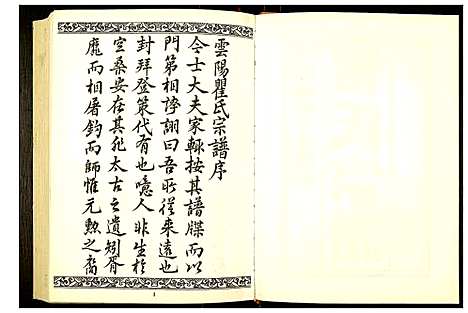 雲陽瞿氏宗譜序
今士大夫家輙按其譜牒而以
門第相誇詡曰吾所從來遠也
封拜登策代有也噫人非生於
空桑安在其非太古之遺矧胥
靡而相屠釣而師惟元勲之裔
1